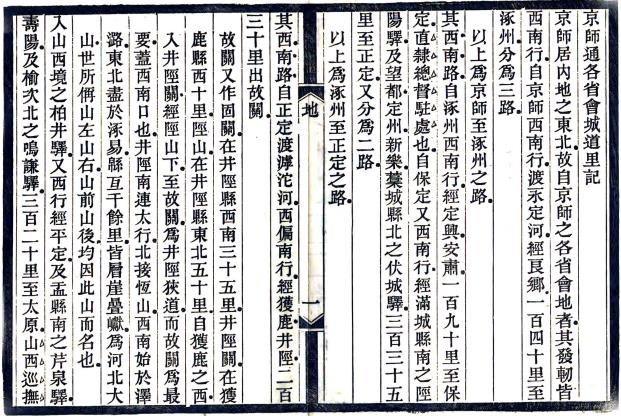 京師通各省會城道里記
京師居內地之東北故自京師之各省會地者其發軔皆
西南行自京師西南行渡永定河經良鄉一百四十里至
涿州分爲三路
以上爲京師至涿州之路
其西南路自涿州西南行經定興安肅一百九十里至保
定直隸總督駐處也自保定又西南行經滿城縣南之陘
陽驛及望都定州新樂藁城縣北之伏城驛三百三十五
里至正定又分爲二路
以上爲涿州至正定之路
地
一
其西南路自正定渡滹沱河西偏南行經獲鹿井陘二百
三十里出故關
故關又作固關在井陘縣西南三十五里井陘關在獲
鹿縣西十里陘山在井陘縣東北五十里自獲鹿之西
入井陘關經陘山下至故關爲井陘狹道而故關爲最
要蓋西南口也井陘南連太行北接恆山西南始於澤
潞東北盡於涿易縣亙千餘里皆層崖疊巘爲河北大
山世所偁山左山右山前山後均因此山而名也
入山西境之柏井驛又西行經平定及盂縣南之芹泉驛
壽陽及榆次北之鳴謙驛三百二十里至太原山西巡撫